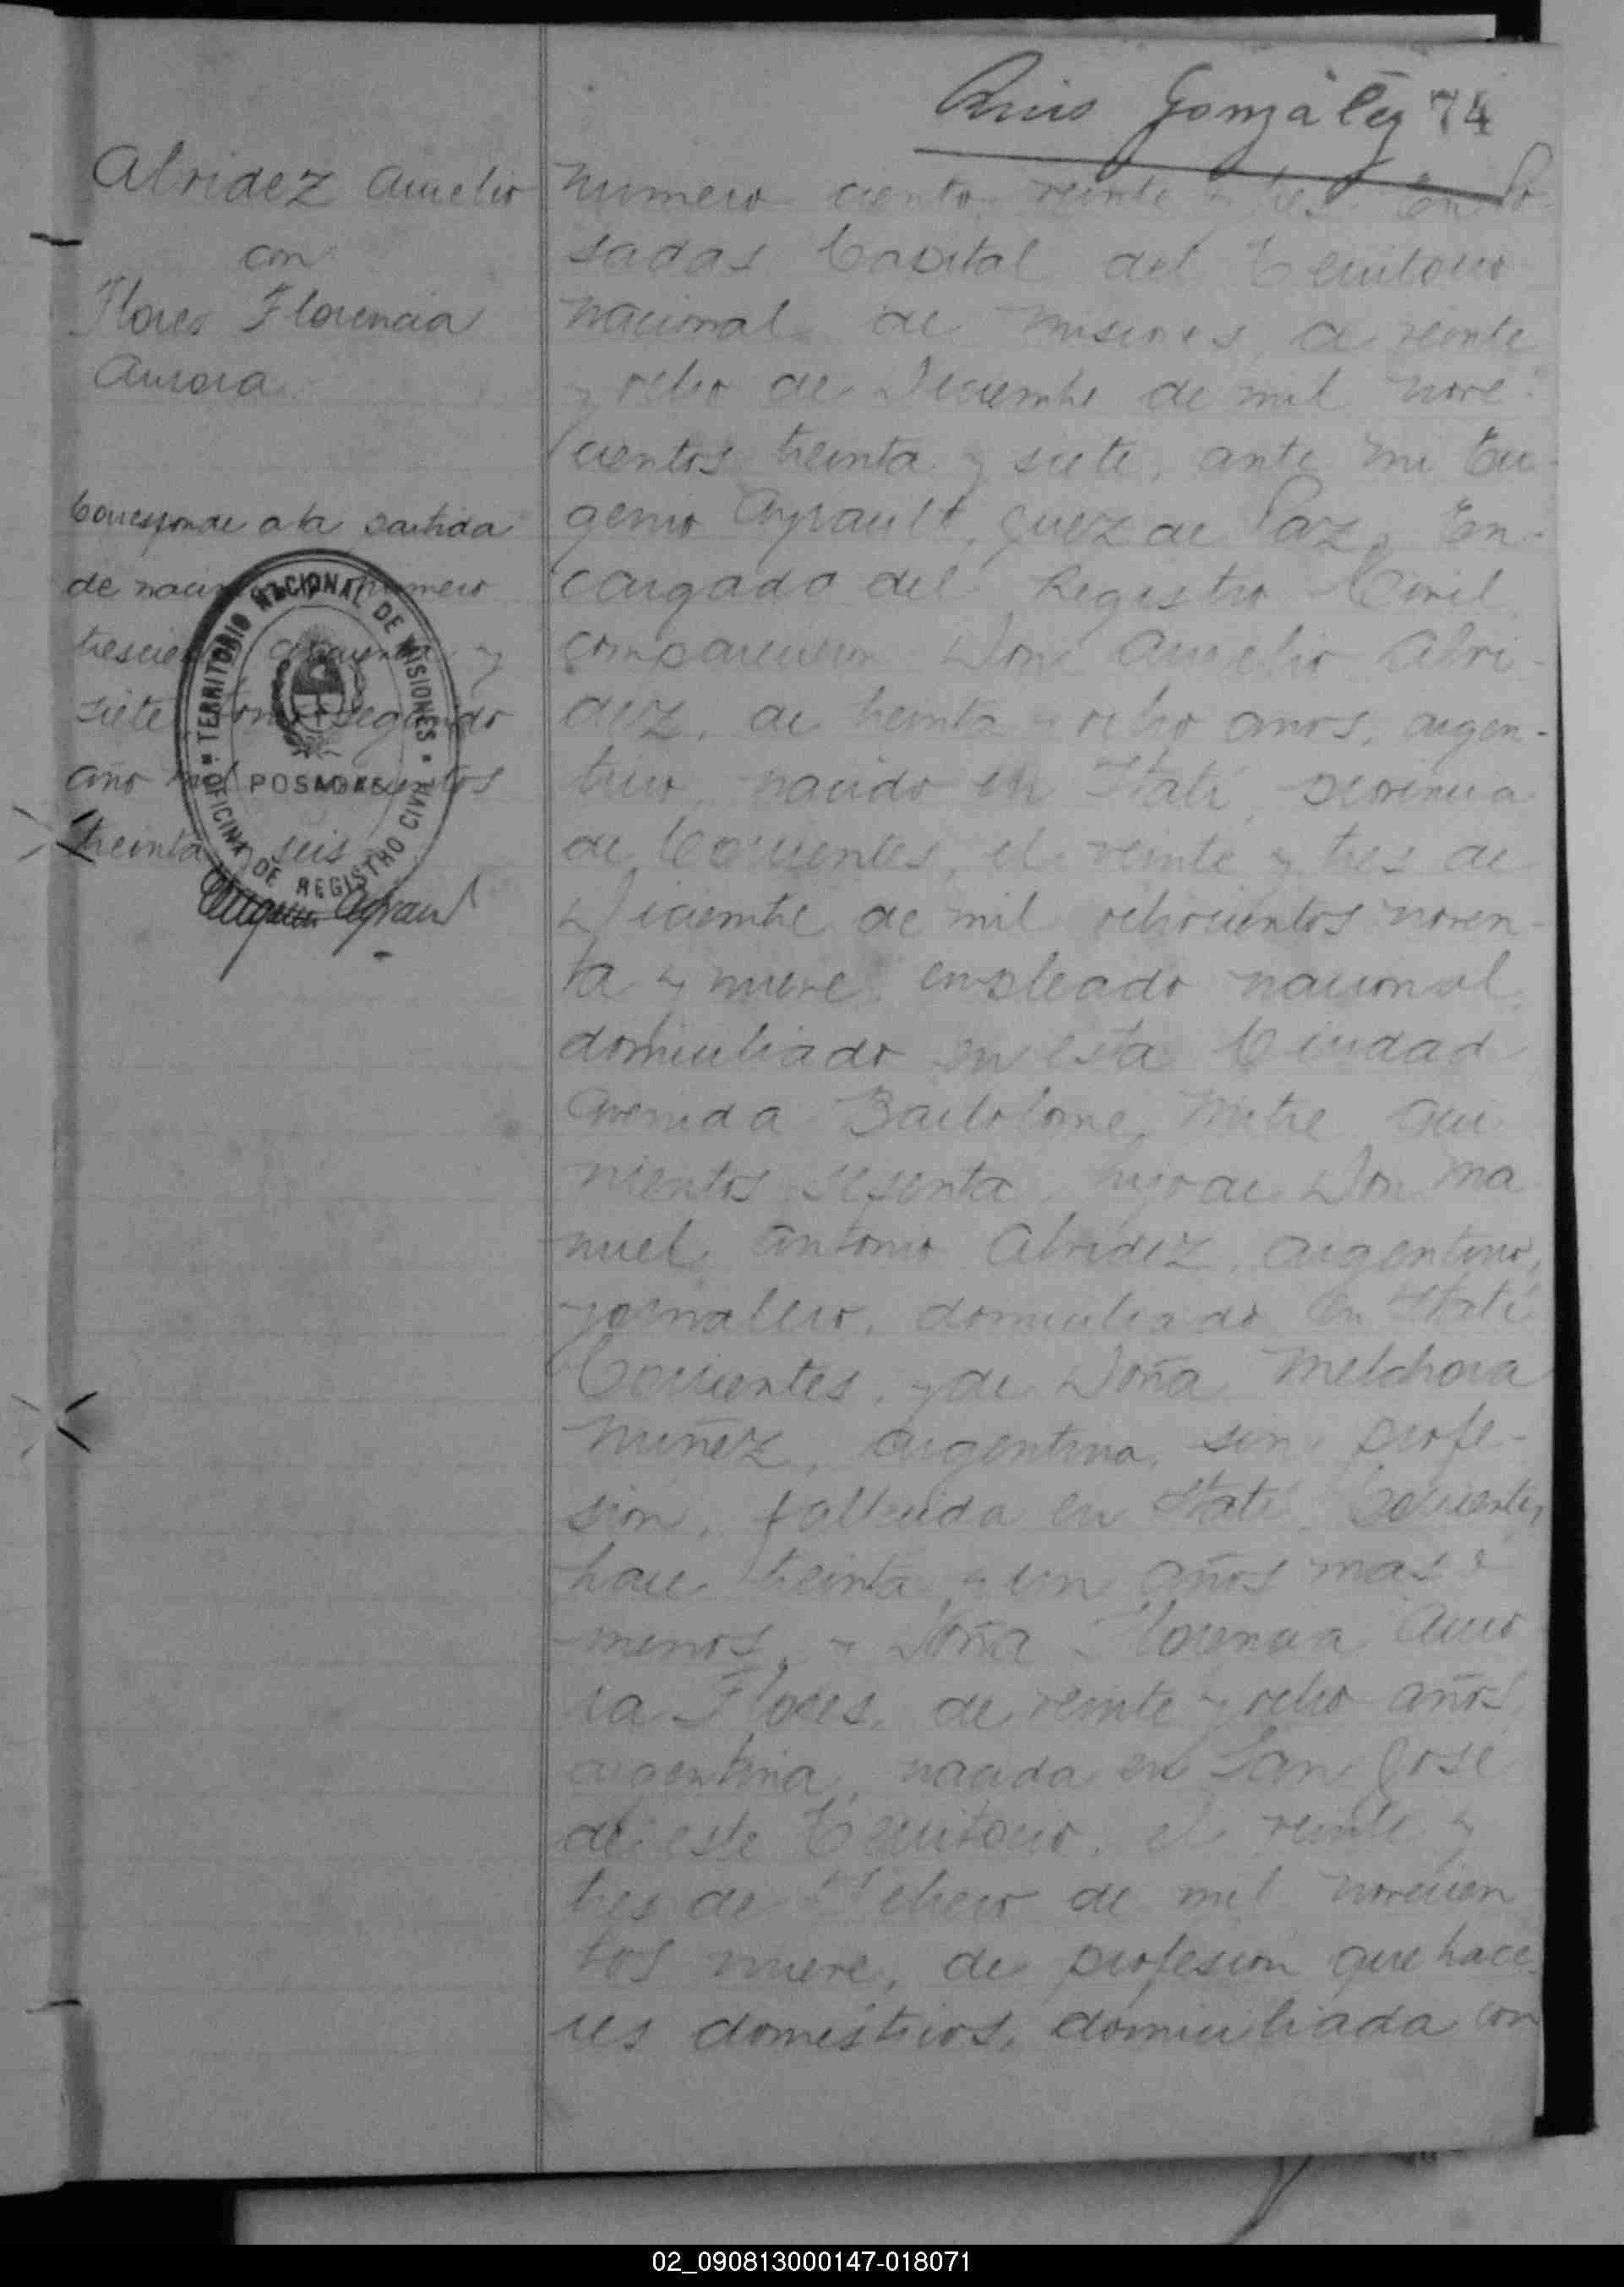 Luis González 74
Alridez Aurelio
con
Flores Florencia
Aurora
Corresponde a la partida
de número
y
siete tomo segundo
año mil
treinta y seis
TERRITORIO NACIONAL DE MISIONES
POSADAS
OFICINA DE REGISTRO CIVIL
Número ciento veinte y tres. En Po-
sadas Capital del Territorio
Nacional de Misiones, a veinte
y ocho de Diciembre de mil nove-
cientos treinta y siete, ante mi Eu-
genio Ayrault, Juez de Paz y En-
cargado del Registro Civil,
comparecieron Don Aurelio Alri-
dez, de treinta y ocho años, argen-
tino, nacido en Itatí, provincia
de Corrientes, el veinte y tres de
Diciembre de mil ochocientos noven-
ta y nueve, empleado nacional,
domiciliado en esta Ciudad
Avenida Bartolome Mitre qui
nientos sesenta, hijo de Don Ma
nuel Antonio Alridez, argentino,
jornalero, domiciliado en Itatí
Corrientes, y de Doña Melchora
Nuñez, argentina, sin profe-
sion, fallecida en Itatí, Corrientes,
hace treinta y un años mas o
menos, y Doña Florencia Auro
ra Flores, de veinte y ocho años,
argentina, nacida en San José
de este Territorio, el veinte y
tres de Febrero de mil novecien
tos nueve, de profesion que hace
res domésticos, domiciliada con
02_090813000147-018071